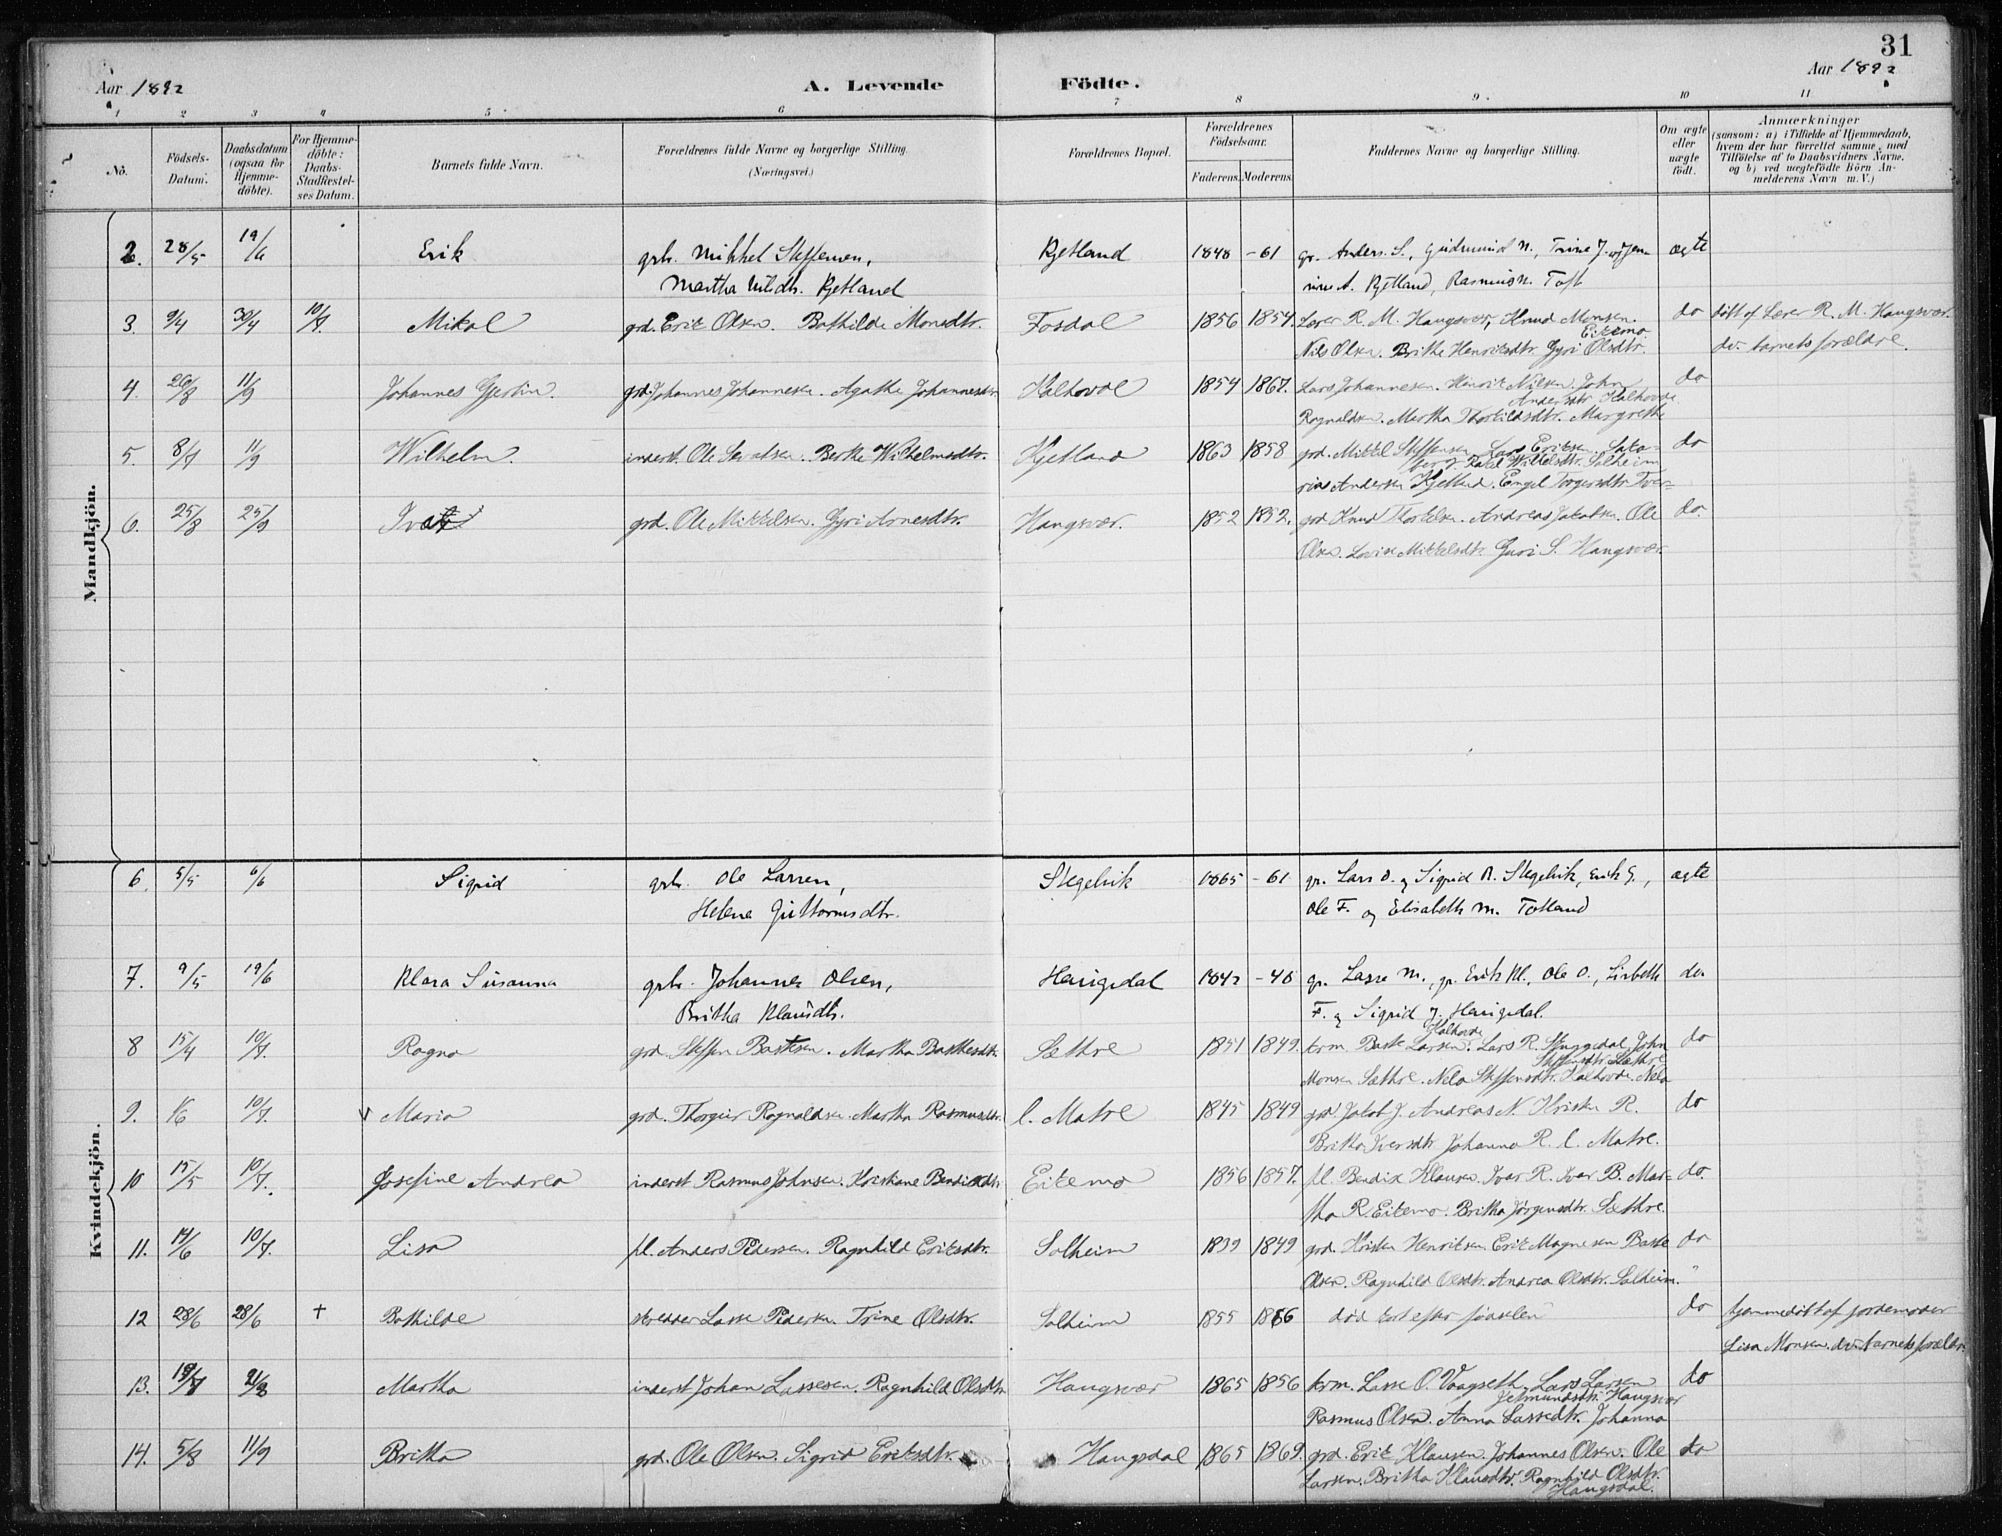 31
Aar 1892 A. Levende Födte. Aar 1892
1 2 3 4 5 6 7 8 9 10 11
No.
Födsels-Datum.
Daabsdatum (ogsaa for Hjemmedöbte).
For Hjemmedöbte: Daabs-Stadfæstelses Datum.
Barnets fulde Navn.
Forældrenes fulde Navne og borgerlige Stilling. (Næringsvei.)
Forældrenes Bopæl.
Forældrenes Födselsaar. Faderens. Moderens.
Faddernes Navne og borgerlige Stilling.
Om ægte eller uægte födt.
Anmærkninger (saasom: a) i Tilfælde af Hjemmedaab, hvem der har forrettet samme, med Tilföielse af to Daabsvidners Navne, og b) ved uægtefödte Börn Anmelderens Navn m. V.)
Mandkjön.
2. 28/5 19/6 Erik grb. Mikkel Steffensen, Kjetland 1848 -61 gr. Anders S., Gudmund N., Trine J. ægte
Martha Nilsdtr. Kjetland A. Kjetland, Rasmus N. Toft
3. 9/4 30/4 10/7 Mikal grd. Erik Olsen. Bothilde Monsdtr. Fosdal 1856 1854. Lærer R. M. Haugsvær, Knud Monsen. do døbt af Lærer R. M. Haugsvær.
Eitemo
Nils Olsen. Brithe Henriksdtr. Gyri Olsdtr. barnets forældre.
4. 26/8 11/9 Johannes Gjertin. grd. Johannes Johannesen. Agathe Johannesdtr. Halhovde 1854 1867. Lars Johannesen. Henrik Nilsen. John do
Andersdtr. Halhovde
Ragnaldsen. Martha Thorkildsdtr. Margrethe
5. 8/7 11/9 Wilhelm. inderst. Ole Berthe Wilhelmsdtr. Kjetland 1863 1858 grd. Mikkel Steffensen. Lars Eriksen. Saka- do
rias Andersen Kjetland. Engel Torgersdtr. Tver-
6. 25/8 25/9 Ivar grd. Ole Mikkelsen. Gyri Arnesdtr. Haugsvær. 1852 1852. grd Knud Andreas Jakobsen. Ole do.
Olsen. Lovise Mikkelsdtr. Guri S. Haugsvær.
Kvindekjön.
6. 5/5 6/6 Sigrid grb. Ole Larsen, Stegelvik 1865 -61 gr. Lars O. og Sigrid R. Stegelvik, Erik G., ægte
Helene Guttormsdtr. Ole F. og Elisabeth M. Totland
7. 9/5 19/6 Klara Susanna grb. Johannes Olsen, Haugsdal 1842 -48 gr. Lasse M., gr. Erik Kl., Ole O., Lisbeth do
Britha Klausdtr. F. og Sigrid J. Haugsdal.
8 15/4 10/7. Ragna grd. Steffen Bastesen. Martha Bastesdtr. Sæthre 1851 1849. krm. Baste Larsen. Lars R. Styggedal. John do
Halhovde
Steffensdtr. Sæthre
Monsen Sæthre. Nela Steffensdtr. Halhovde. Nela
9. 1/6 10/7. Maria grd. Thorgeir Ragnaldsen. Martha Rasmusdtr. l. Matre 1845 1849 grd. Jakob J. Andreas N. Kristen R. do
Britha Iversdtr. Johanna R. l. Matre.
10 15/5 10/7. Josefine Andrea inderst Rasmus Johnsen. Kristiane Bendiksdtr. Eitemo 1856 1857. fl. Bendix Klausen. Ivar R. Ivar B. Mar- do.
tha R. Eitemo. Britha Jørgensdtr. Sæthre.
11. 14/6 10/7. Lisa fl. Anders Pedersen. Ragnhild Eriksdtr. Solheim 1839 1849 grd. Kristen Henriksen. Erik Magnesen. Baste do
Olsen. Ragnhild Olsdtr. Andrea Olsdtr. Solheim.
12 28/6 28/6 † Bothilde skredder Lasse Pedersen. Trine Olsdtr. Solheim 1855 1856 død kort efter fødselen do hjemmedøbt af jordemoder
Lisa Monsen. barnets forældre.
13. 19/7 21/8 Martha inderst Johan Lassesen. Ragnhild Olsdtr. Haugsvær 1865 1856 krm. Lasse O. Vaagseth. Lars Larsen do
Jetmundsdtr. Haugsvær
Rasmus Olsen. Anna Lassedtr. Johanna
14. 5/8 11/9 Britha grd. Ole Olsen. Sigrid Eriksdtr. Haugsdal 1865 1869. grd. Erik Klausen. Johannes Olsen. Ole do
Larsen. Britha Klausdtr. Ragnhild Olsdtr.
Haugsdal.